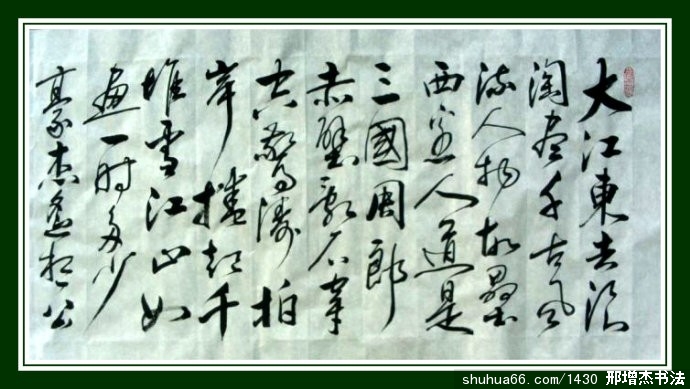 大江東去浪
淘盡千古風
流人物故壘
西邊人道是
三國周郎
赤壁亂石穿
空驚濤拍
岸捲起千
堆雪江山如
畫一時多少
豪杰遙想公
shuhua66.com/1430 邢增杰书法